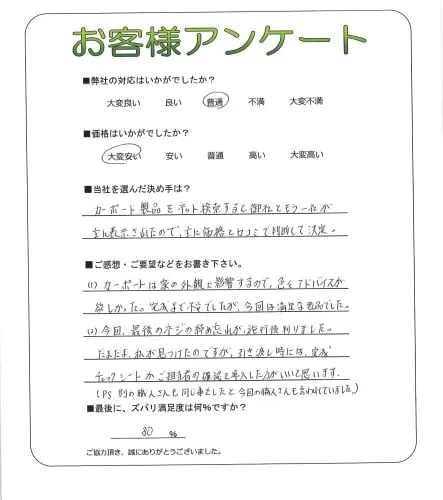 お客様アンケート
■弊社の対応はいかがでしたか?
大変良い 良い 普通 不満 大変不満
■価格はいかがでしたか?
大変安い 安い 普通 高い 大変高い
■当社を選んだ決め手は?
カーポート製品をネット検索すると御社ともう一社が
主に表示されたので、主に価格と口コミで判断して決定。
■ご感想・ご要望などをお書き下さい。
(1) カーポートは家の外観に影響するので、色々アドバイスが
欲しかった。完成まで不安でしたが、今回は満足な製品でした。
(2) 今回、最後のネジの締め忘れが、施行後判りました。
たまたま、私が見つけたのですが、引き渡し時には、完成
チェックシートかご担当者の確認を導入した方がいいと思います。
(PS 別の職人さんも同じ事をしたと今回の職人さんも言われていました。)
■最後に、ズバリ満足度は何%ですか?
80 %
ご協力頂き、誠にありがとうございました。